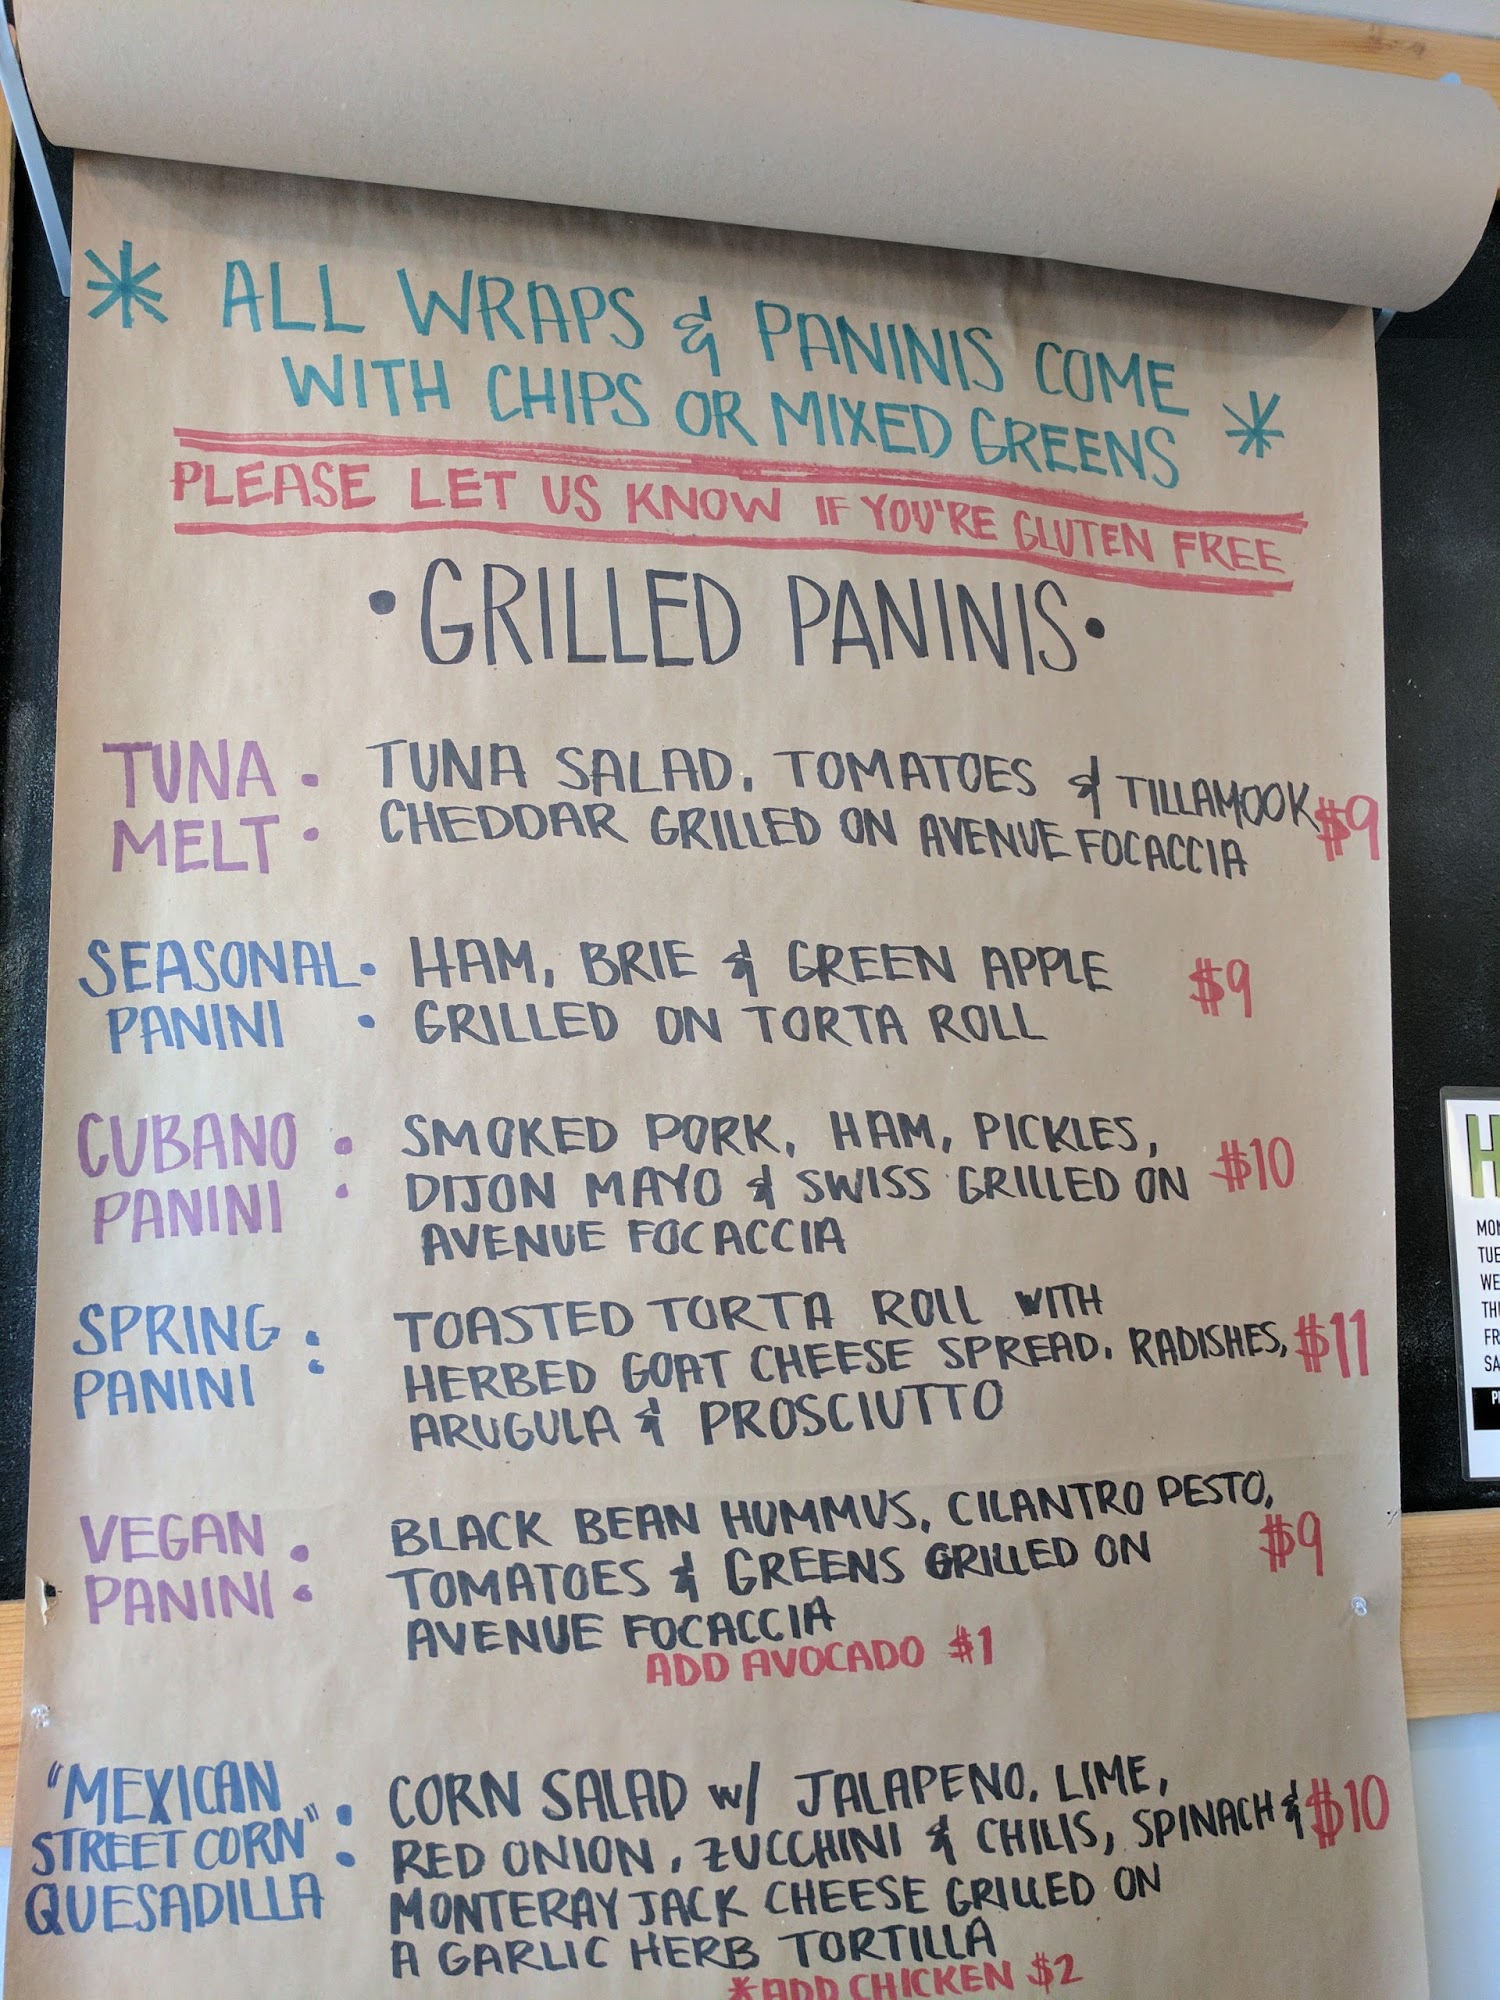 * ALL WRAPS & PANINIS COME
WITH CHIPS OR MIXED GREENS *
PLEASE LET US KNOW IF YOU'RE GLUTEN FREE
• GRILLED PANINIS •
TUNA MELT : TUNA SALAD, TOMATOES & TILLAMOOK $9
CHEDDAR GRILLED ON AVENUE FOCACCIA
SEASONAL PANINI : HAM, BRIE & GREEN APPLE $9
GRILLED ON TORTA ROLL
CUBANO PANINI : SMOKED PORK, HAM, PICKLES,
DIJON MAYO & SWISS GRILLED ON $10
AVENUE FOCACCIA
SPRING PANINI : TOASTED TORTA ROLL WITH
HERBED GOAT CHEESE SPREAD, RADISHES, $11
ARUGULA & PROSCIUTTO
VEGAN PANINI : BLACK BEAN HUMMUS, CILANTRO PESTO,
TOMATOES & GREENS GRILLED ON $9
AVENUE FOCACCIA
ADD AVOCADO $1
"MEXICAN STREET CORN" QUESADILLA : CORN SALAD W/ JALAPENO, LIME,
RED ONION, ZUCCHINI & CHILIS, SPINACH & $10
MONTERAY JACK CHEESE GRILLED ON
A GARLIC HERB TORTILLA
*ADD CHICKEN $2